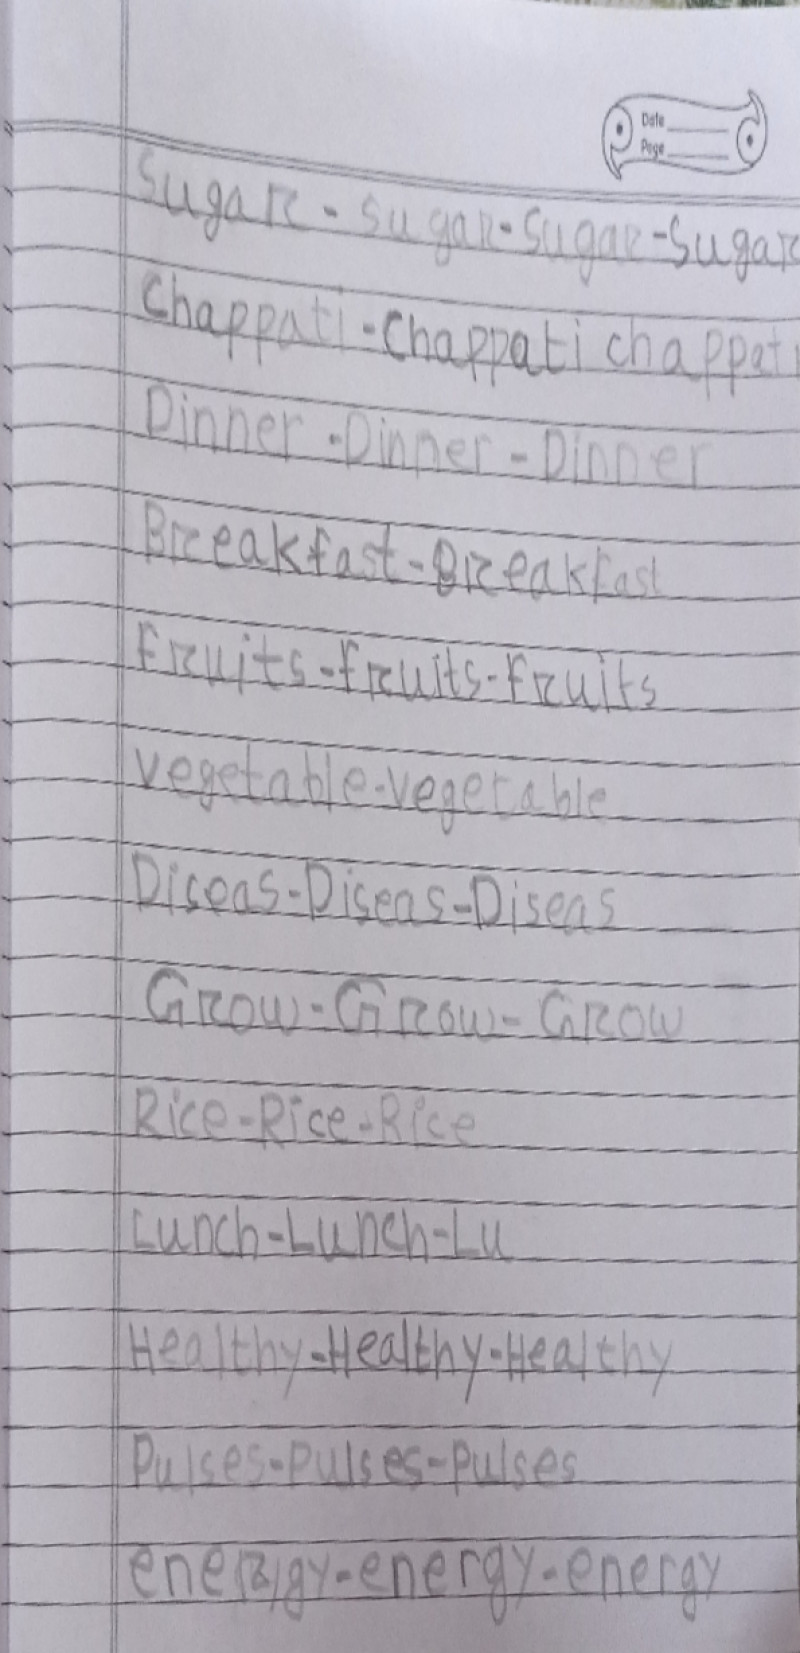 Date
Page
Sugar - Sugar - Sugar - Sugar
Chappati - Chappati chappati
Dinner - Dinner - Dinner
Breakfast - Breakfast
Fruits - fruits - Fruits
vegetable - vegetable
Diseas - Diseas - Diseas
Grow - Grow - Grow
Rice - Rice - Rice
Lunch - Lunch - Lu
Healthy - Healthy - Healthy
Pulses - pulses - pulses
energy - energy - energy